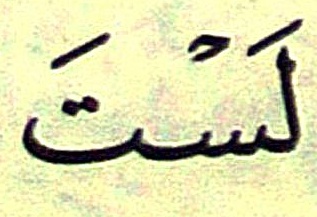 لَسْتَ